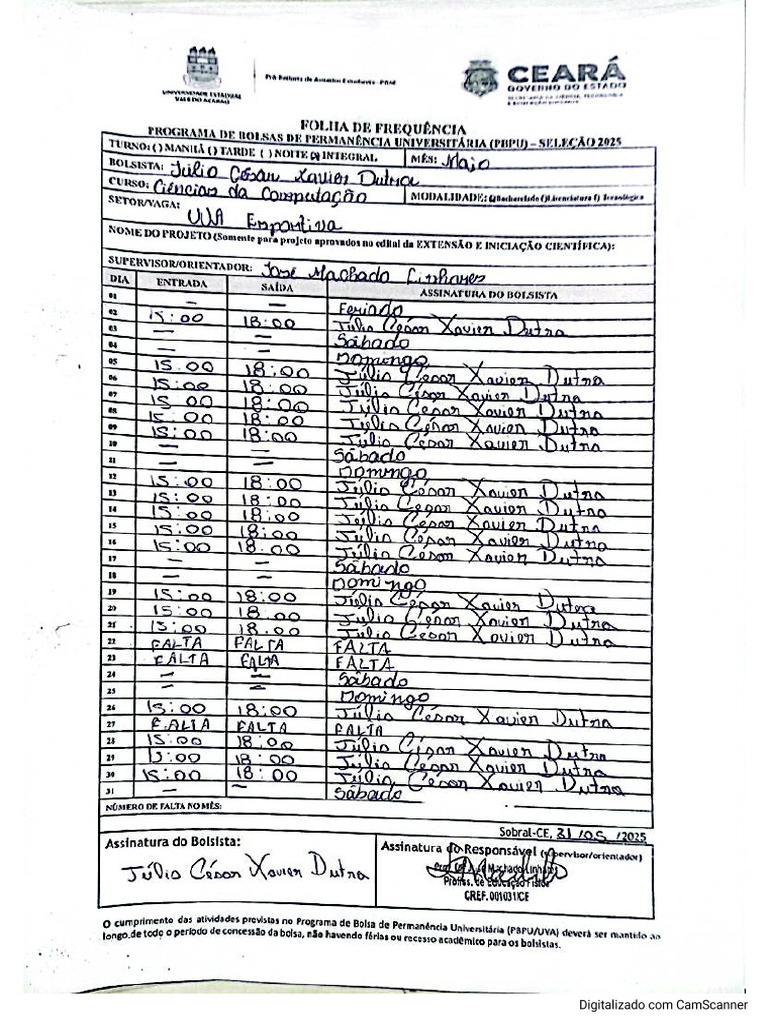 UNIVERSIDADE ESTADUAL
VALE DO ACARAÚ
Pró-Reitoria de Assuntos Estudantis - PRAE
CEARÁ
GOVERNO DO ESTADO
SECRETARIA DA CIÊNCIA, TECNOLOGIA
E EDUCAÇÃO SUPERIOR
FOLHA DE FREQUÊNCIA
PROGRAMA DE BOLSAS DE PERMANÊNCIA UNIVERSITÁRIA (PBPU) – SELEÇÃO 2025
TURNO: ( ) MANHÃ ( ) TARDE ( ) NOITE (X) INTEGRAL MÊS: Maio
BOLSISTA: Júlio César Xavier Dutra
CURSO: Ciências da Computação MODALIDADE: (X)Bacharelado ( )Licenciatura ( ) Tecnológica
SETOR/VAGA: UVA Esportiva
NOME DO PROJETO (Somente para projeto aprovados no edital da EXTENSÃO E INICIAÇÃO CIENTÍFICA):
SUPERVISOR/ORIENTADOR: José Machado Linhares
DIA ENTRADA SAÍDA ASSINATURA DO BOLSISTA
01 — — Feriado
02 15:00 18:00 Júlio César Xavier Dutra
03 — — Sábado
04 — — Domingo
05 15:00 18:00 Júlio César Xavier Dutra
06 15:00 18:00 Júlio César Xavier Dutra
07 15:00 18:00 Júlio César Xavier Dutra
08 15:00 18:00 Júlio César Xavier Dutra
09 15:00 18:00 Júlio César Xavier Dutra
10 — — Sábado
11 — — Domingo
12 15:00 18:00 Júlio César Xavier Dutra
13 15:00 18:00 Júlio Cesar Xavier Dutra
14 15:00 18:00 Júlio César Xavier Dutra
15 15:00 18:00 Júlio César Xavier Dutra
16 15:00 18:00 Júlio César Xavier Dutra
17 — — Sábado
18 — — Domingo
19 15:00 18:00 Júlio César Xavier Dutra
20 15:00 18:00 Júlio César Xavier Dutra
21 15:00 18:00 Júlio César Xavier Dutra
22 FALTA FALTA FALTA
23 FALTA FALTA FALTA
24 — — Sábado
25 — — Domingo
26 15:00 18:00 Júlio César Xavier Dutra
27 FALTA FALTA FALTA
28 15:00 18:00 Júlio César Xavier Dutra
29 15:00 18:00 Júlio César Xavier Dutra
30 15:00 18:00 Júlio César Xavier Dutra
31 — — Sábado
NÚMERO DE FALTA NO MÊS:
Sobral-CE, 31/05/2025
Assinatura do Bolsista:
Júlio César Xavier Dutra
Assinatura do Responsável (supervisor/orientador)
Machado Linhares
Profiss. de Educação Física
CREF. 001031/CE
O cumprimento das atividades previstas no Programa de Bolsa de Permanência Universitária (PBPU/UVA) deverá ser mantido ao
longo de todo o período de concessão da bolsa, não havendo férias ou recesso acadêmico para os bolsistas.
Digitalizado com CamScanner